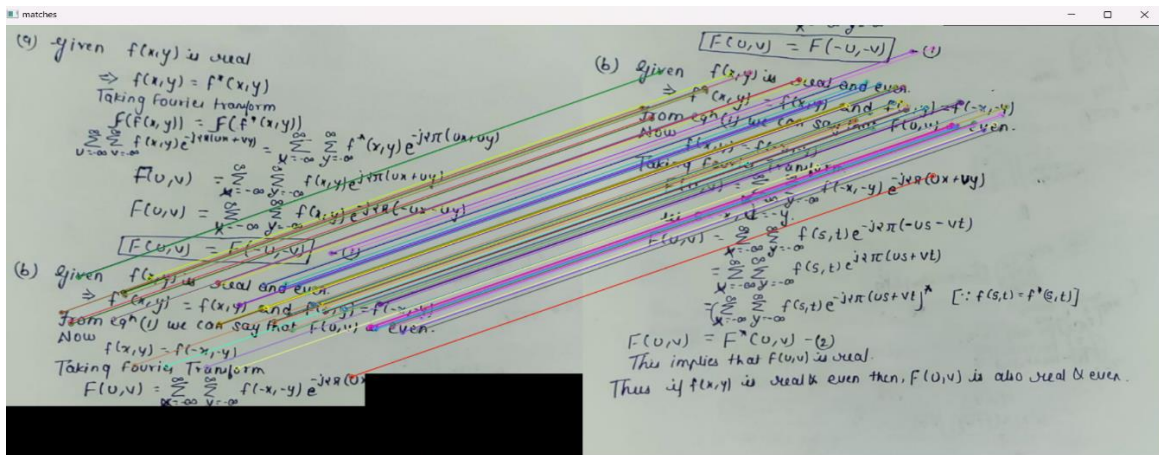 matches
(a) Given f(x,y) is real
⇒ f(x,y) = f*(x,y)
Taking Fourier transform
F(f(x,y)) = F(f*(x,y))
∞ ∞ Σ Σ u=-∞ v=-∞ f(x,y)e^-j2π(ux+vy) = ∞ ∞ Σ Σ x=-∞ y=-∞ f*(x,y)e^-j2π(ux+vy)
F(u,v) = ∞ ∞ Σ Σ x=-∞ y=-∞ f(x,y)e^j2π(ux+vy)
F(u,v) = ∞ ∞ Σ Σ x=-∞ y=-∞ f(x,y)e^-j2π(-ux-vy)
F(u,v) = F(-u,-v) -(1)
(b) Given f(x,y) is real and even.
⇒ f*(x,y) = f(x,y) and f(x,y) = f(-x,-y)
From eqn(1) we can say that F(u,v) is even.
Now
f(x,y) = f(-x,-y)
Taking Fourier Transform
F(u,v) = ∞ ∞ Σ Σ x=-∞ y=-∞ f(-x,-y) e^-j2π(ux
F(u,v) = F(-u,-v) -(1)
(b) Given f(x,y) is real and even.
⇒ f*(x,y) = f(x,y) and f(x,y) = f(-x,-y)
From eqn(1) we can say that F(u,v) is even.
Now
f(x,y) = f(-x,-y)
Taking Fourier Transform
F(u,v) = ∞ ∞ Σ Σ x=-∞ y=-∞ f(-x,-y) e^-j2π(ux+vy)
-x, =-y
F(u,v) = ∞ ∞ Σ Σ x=-∞ y=-∞ f(s,t)e^-j2π(-us-vt)
= ∞ ∞ Σ Σ x=-∞ y=-∞ f(s,t)e^j2π(us+vt)
= (∞ ∞ Σ Σ x=-∞ y=-∞ f(s,t)e^-j2π(us+vt)]* [∵ f(s,t)=f*(s,t)]
F(u,v) = F*(u,v) -(2)
This implies that F(u,v) is real.
Thus if f(x,y) is real & even then, F(u,v) is also real & even.